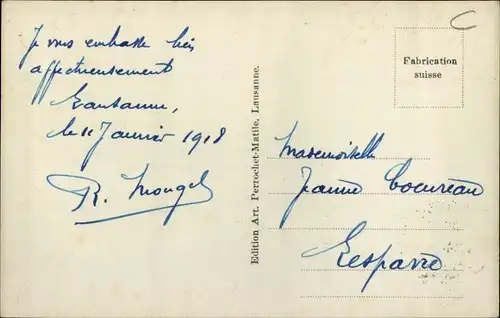 Je vous embrasse bien
affectueusement
Lausanne,
le 11 Janvier 1918
R. Mongel
Edition Art. Perrochet-Matile, Lausanne.
Fabrication
suisse
Mademoiselle
Jeanne Cocureau
Lesparre